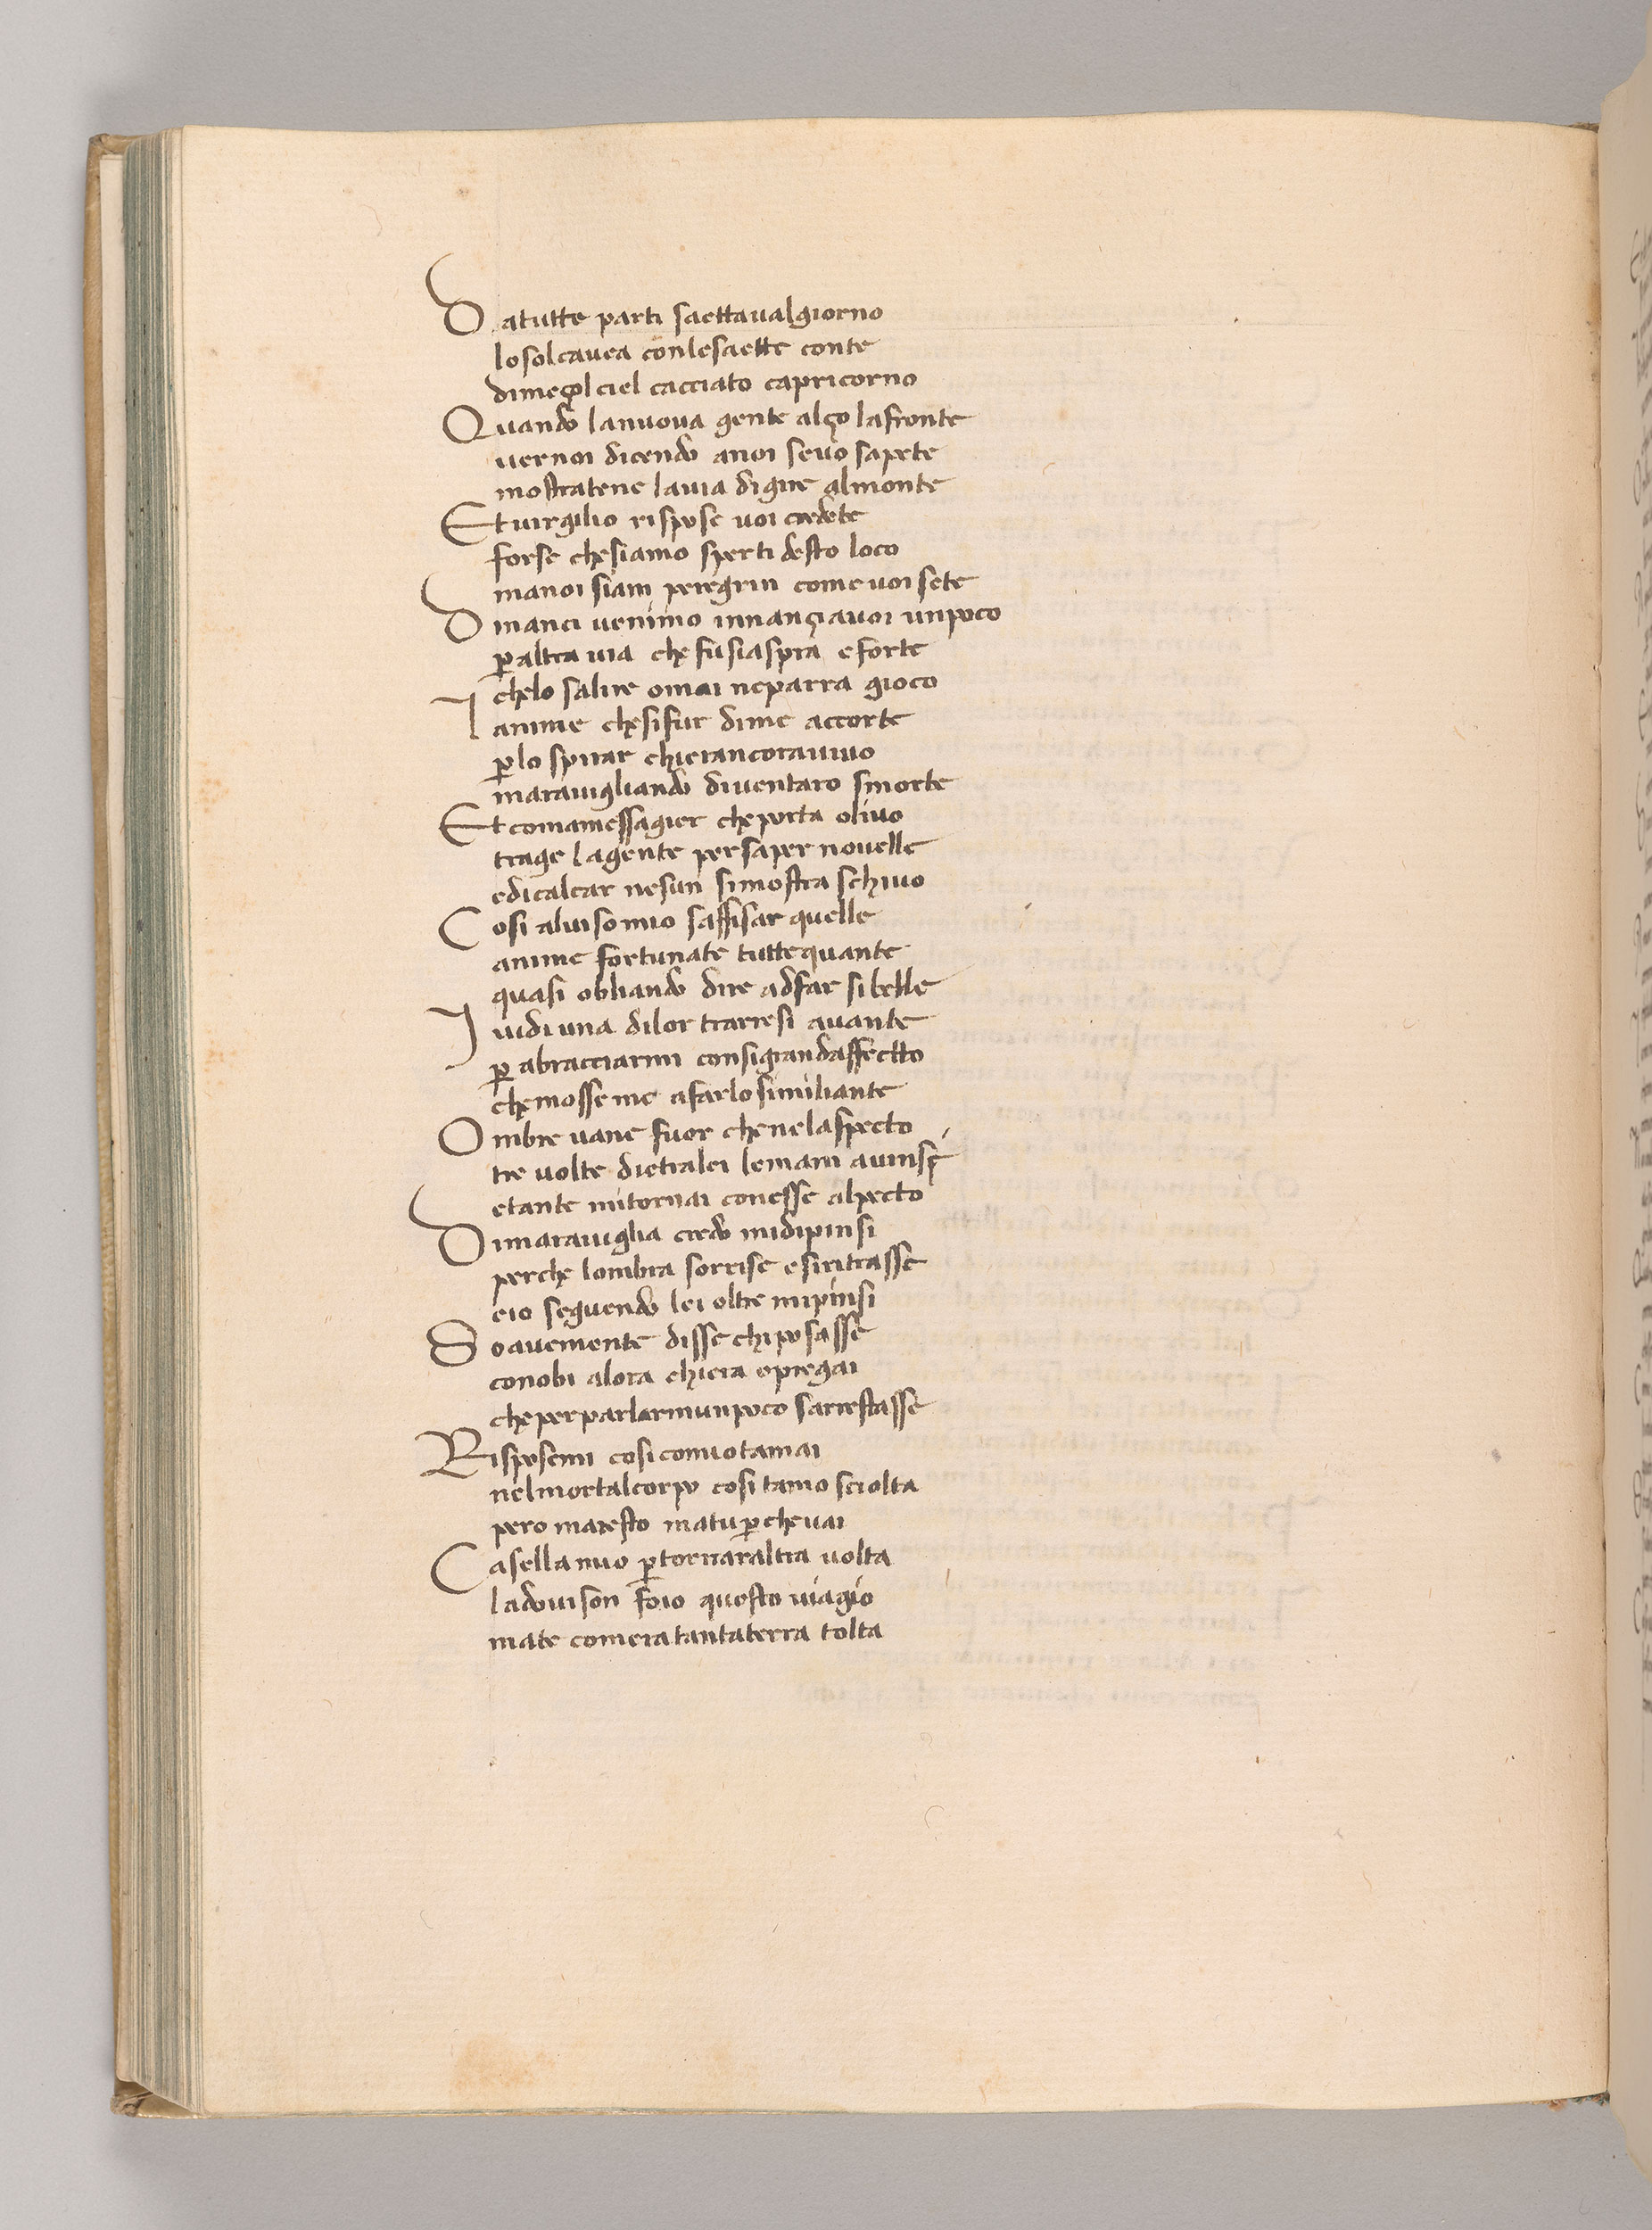 Datutte parti saettaualgiorno
losolcauea conlesaette conte
dimeçol ciel cacciato capricorno
Quando lanuoua gente alço lafronte
uernoi dicendo anoi seuo sapete
mostratene lauia digire almonte
Etuirgilio rispose uoi credete
forse chesiamo sperti desto loco
manoi siam peregrin come uoi sete
Dinanci uenimo innançiauoi unpoco
p̱altra uia che fusiaspra eforte
chelo salire omai neparra gioco
Lanime chesifur dime accorte
p̱lo spirar chierancorauiuo
marauigliando diuentaro smorte
Etcomamessagier cheporta oliuo
trage lagente persaper nouelle
edicalcar nesun simostra schiuo
Cosi aluisomio saffisar quelle
anime fortunate tuttequante
quasi obliando dire adfar sibelle
I uidi una dilor trarresi auante
p̱ abracciarmi consigrandaffectto
chemosse me afarlosimiliante
Ombre uane fuor chenelaspecto
tre uolte dietralei lemani auinsi
etante mitornai conesse alpecto
Dimarauiglia credo midipinsi
perche lombra sorrise esiritrasse
eio seguendo lei oltre mipinsi
Soauemente disse chiposasse
conobi alora chiera epregai
cheperparlarmiunpoco sarrestasse
Risposemi cosicomiotamai
nelmortalcorpo cosi tamo sciolta
pero maresto matup̱cheuai
Casellamio p̱tornaraltra uolta
ladouison foio questo uiagio
mate comeratantaterra tolta